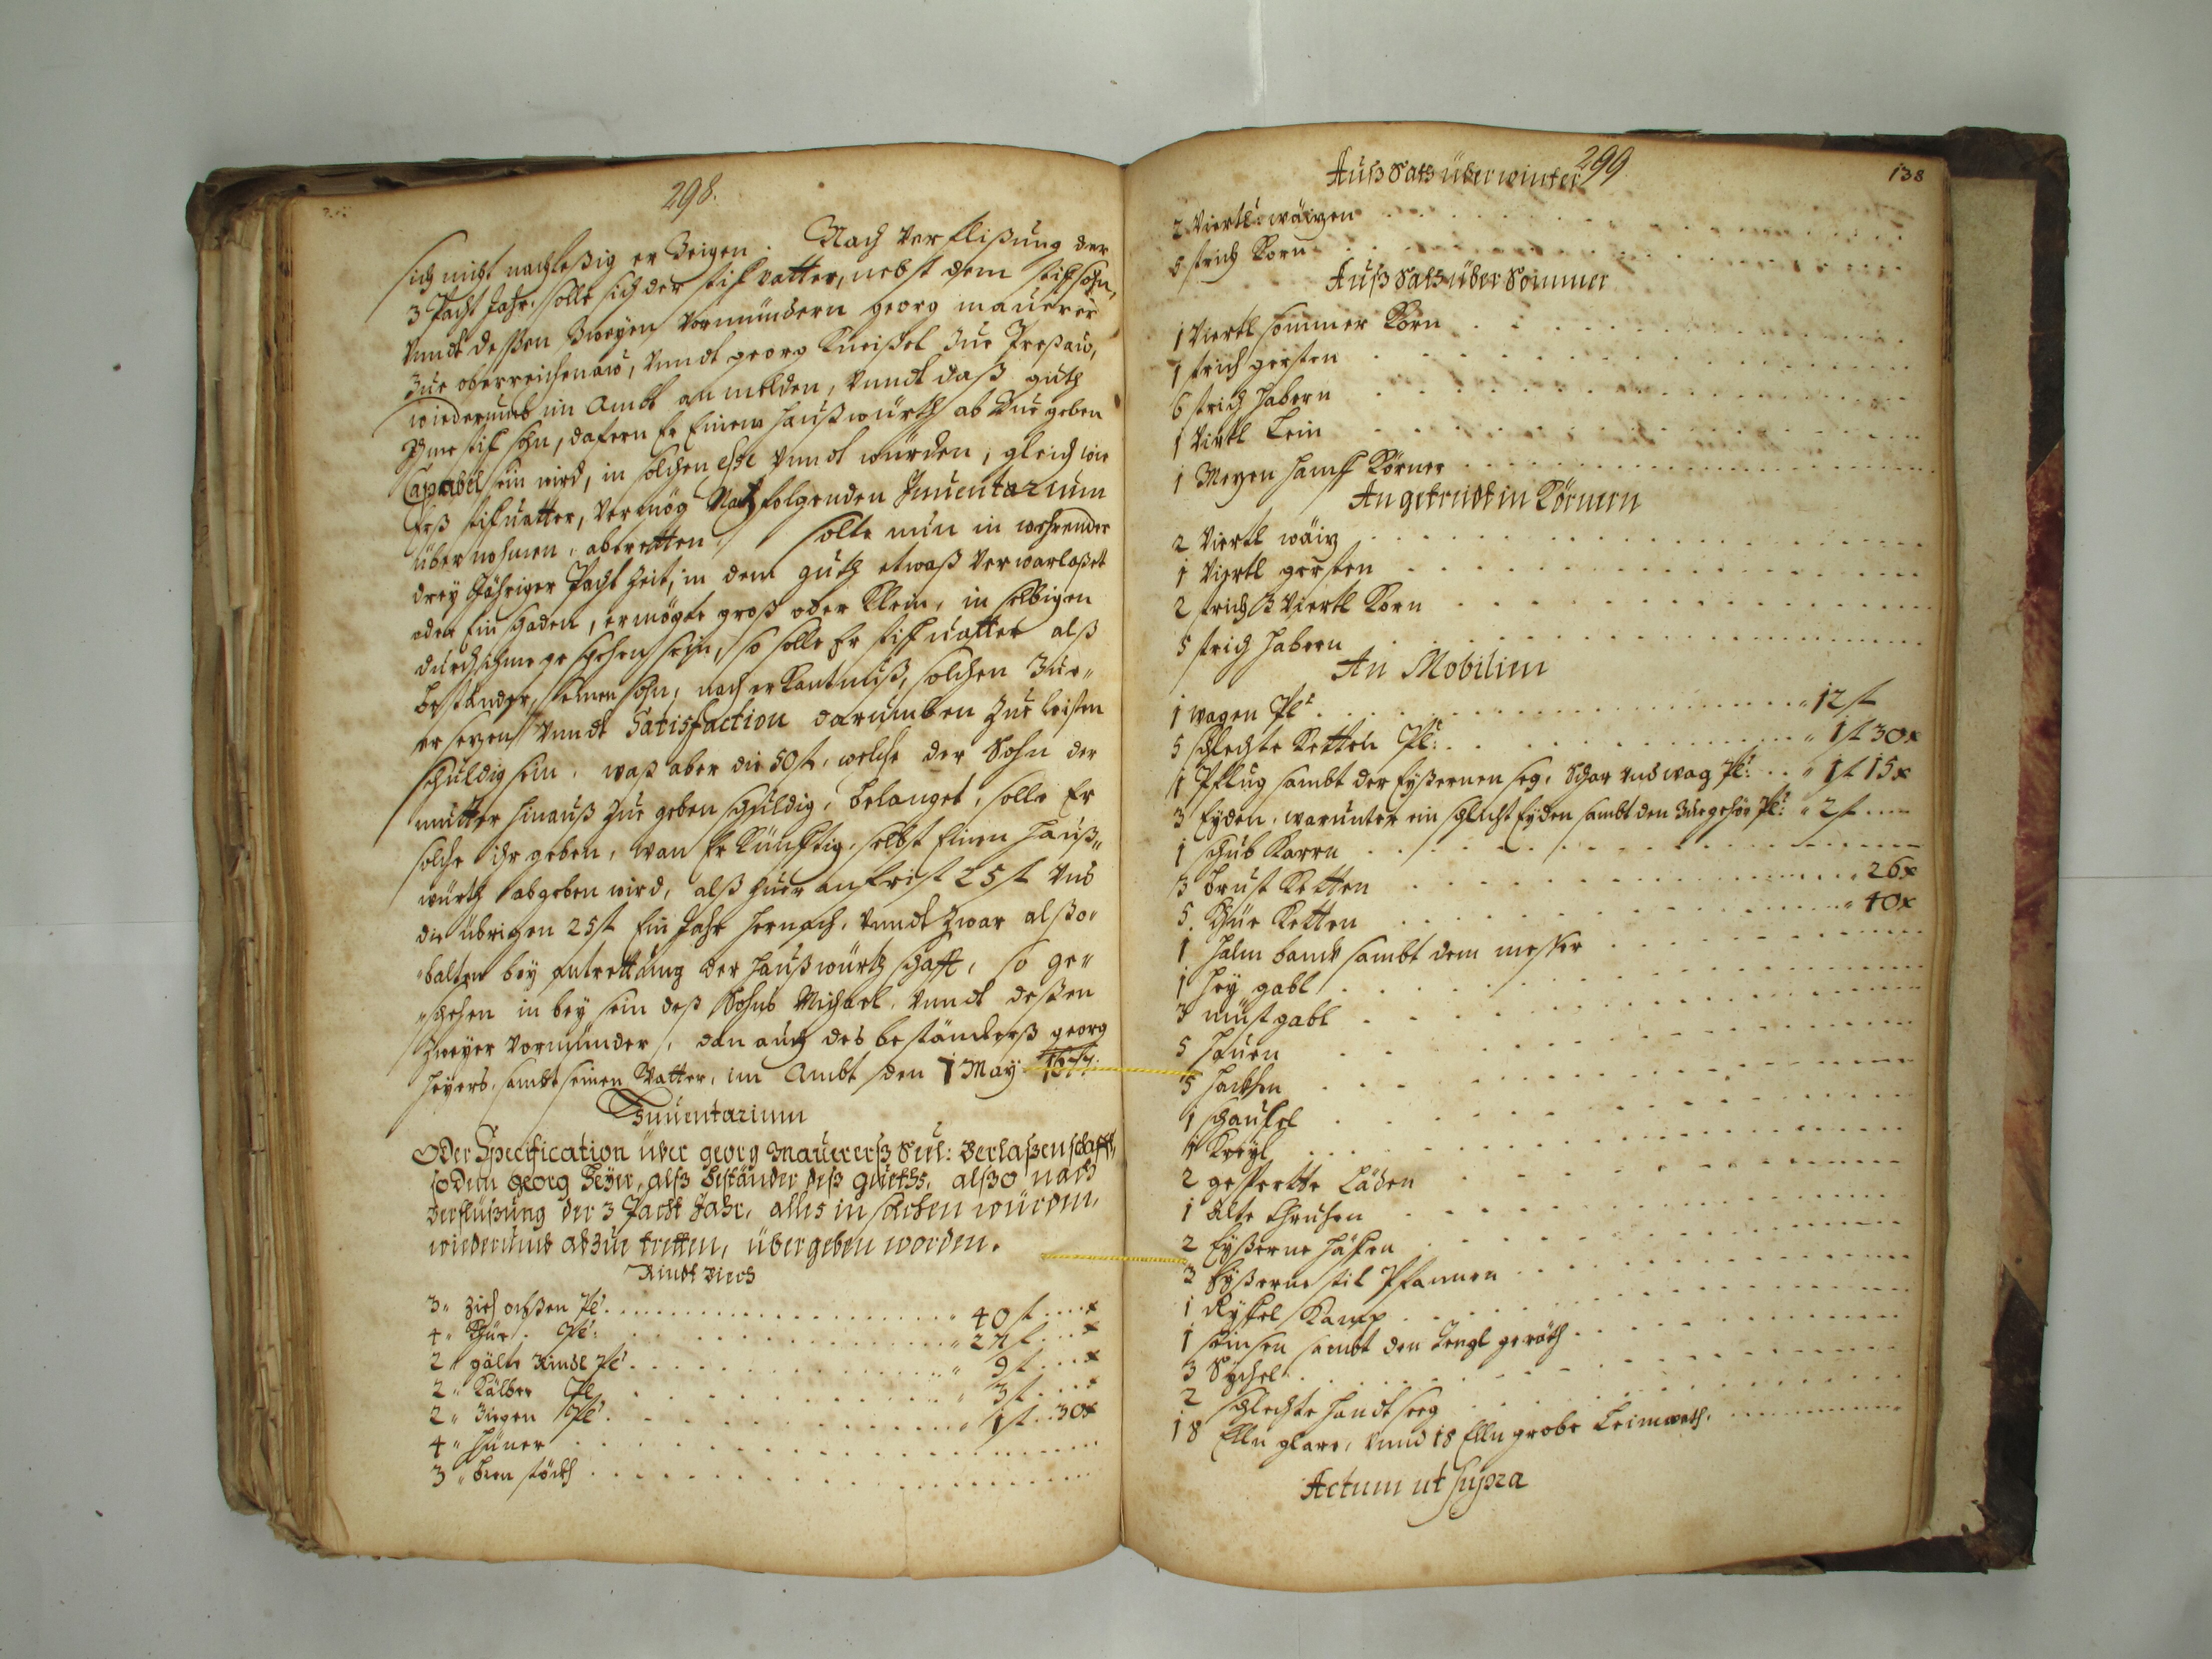 298.
sich nicht nachleßig erzeigen. Nach verflißung der
3 Pacht Jahr, solle sich der stifvatter, nebst dem stifsohn,
vnndt deßen zweyen Vormündern georg maurer
zue oberreichenaw, vnndt georg Kneißel zue
wiederumb im Ambt anmelden, vnndt daß guth
Ihme stifsohn, dafern Er Einen haußwürth abzuegeben
Capabel sein wird, in solchen esse vnndt würden, gleich wie
Eß stifuatter, vermög Nachfolgenden Inuentarium
übernohmen, abtretten. Solte nun in wehrender
drey Jähriger Pacht Zeit, in dem guth etwaß verwarlaßet
oder Ein schaden, er mögte groß oder klein, in selbigen
durch ihme geschehen sein, so solle Er stifuatter alß
beständer, seinen sohn, nach erkantnuß, solchen zue"
ersezen vnndt Satisfaction darumben zue leisten
schuldig sein, waß aber die 50 f, welche der Sohn der
mutter hinauß zue geben schuldig, belanget, solle Er
solche ihr geben, wan Er künfftig selbst Einen hauß"
würth abgeben wird, alß zuer anfrist 25 f vnd
die übrigen 25 f Ein Jahr hernach, vnndt zwar alßo"
"balten bey antrettung der haußwürthschafft, so ge"
"schehen in bey sein deß Sohns Michael, vnndt deßen
zweyer vormünder, dan auch des beständerß georg
heyers, sambt seinen Vatter, im Ambt den 1 May
Inuentarium
Oder Specification über georg Maurerß Seel: Verlaßenschafft,
so dem georg Heyer, alß beständer deß gueths, alßo nach
verflüßung der 3 Pacht Jahr, alles in solchen würden,
wiederumb abzue tretten, übergeben worden.
Rindt Viech
3" Zieh ochßen Pl: " 40 f x
4" Khüe Pl: " 24 f x
2" gälte Rindl Pl: " 9 f x
2" Kälber Pl " 3 f
2" Ziegen Pl: " 1 f 30 x
4" hüner
3" bien stöckh
299
138
Auß Satz über winter
2 Viertl wäizen
8 strich Korn
Auß Satz über Sommer
1 Viertl sommer Korn
1 strich gersten
6 strich habern
1 Viertl Lein
1 Mezen hanff Körner
An getreidt in Körnern
2 Viertl wäiz
1 Viertl gersten
2 strich 3 Viertl Korn
5 strich habern
An Mobilien
1 wagen Pl: " 12 f
5 schlechte Ketten Pl: " 1 f 30 x
1 Pfflug sambt der Eyßernen seg, Schar vnd wag Pl: " 1 f 15 x
3 Eyden, warunter ein schlecht Eyden sambt den Zuegehör Pl: " 2 f
1 schub Karrn
3 brust Ketten " 26 x
5. Khüe Ketten " 40 x
1 halm banck sambt dem messer
1 hey gabl
3 mistgabl
5 hauen
5 hackhen
1 schaufel
1 Kreyl
2 gesperrte Läden
1 alte Thruhen
2 Eyßerne häffen
3 Eyßerne stil Pfannen
1 Ryffel Kamp
1 seinsen sambt den Dengl geräth
3 Sychel
2 schlechte handt seeg
18 Elln glare, vnnd 18 Elln grobe Leimweth.
Actum ut supra